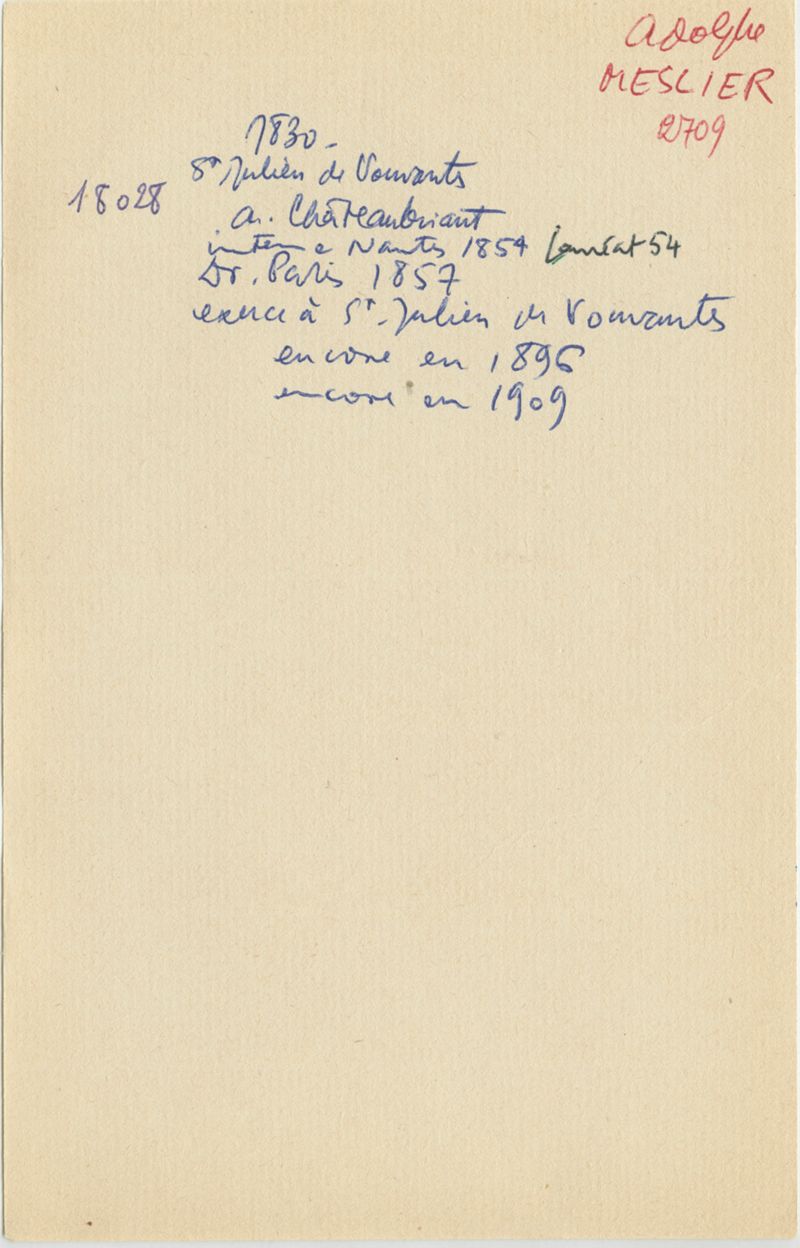 Adolphe
MESLIER
2709
1830 -
St Julien de Vouvants
18028
ar. Châteaubriant
interne Nantes 1854 Lauréat 54
Dr. Paris 1857
exerce à St-Julien de Vouvants
encore en 1896
encore en 1909